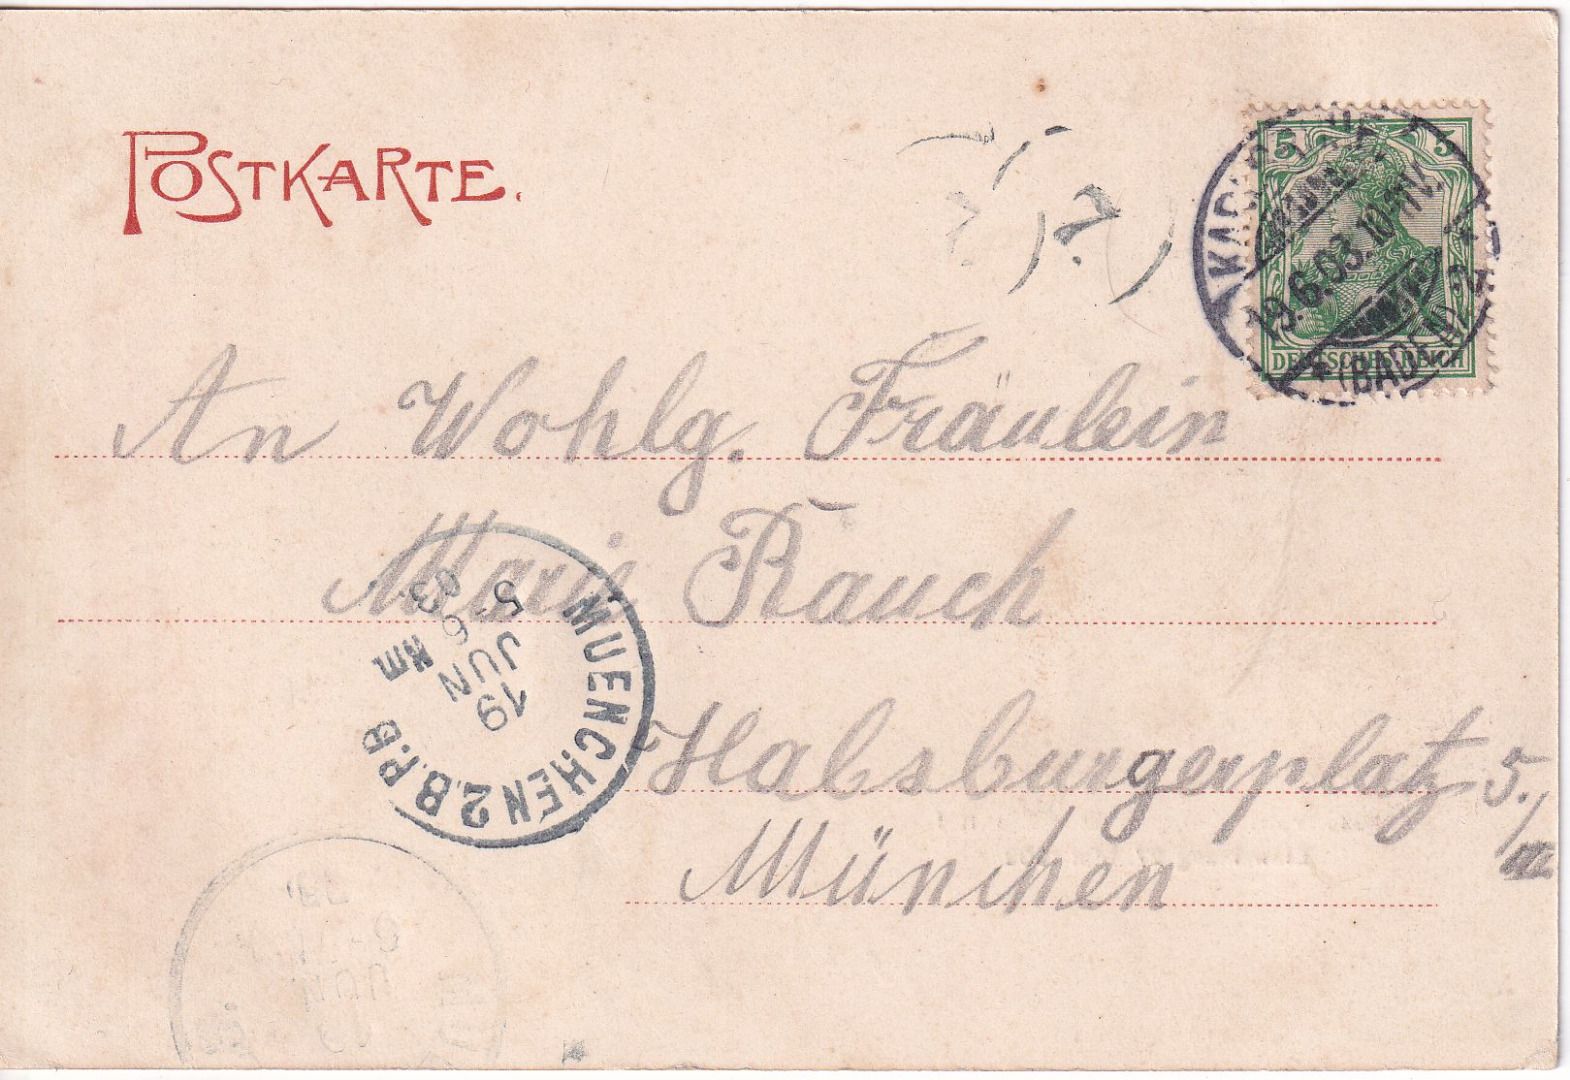 POSTKARTE.
5 5
DEUTSCHES REICH
KARLSRUHE
19.6.03.10
(BADEN)
An Wohlg. Fräulein
Marie Rauch
Habsburgerplatz 5.
München
MUENCHEN 2.B.P.B
19
JUN
5-6
03
NM